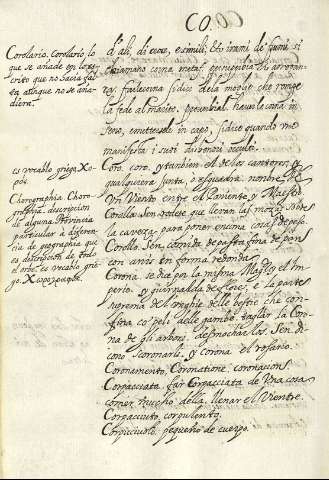 CO
Corolario. Corolario lo
que se añade en lo es
crito que no hacia fal
ta aunque no se aña
diera.
es vocablo griego
Chorographia. Choro
graphia. descripcion
de alguna Provincia
particular à diferen
cia de geographia que
es descripcion de todo
el orbe. es vocablo grie
go.
d'ali, di croce, e simili, et i rami de fiumi si
chiamano corna
la fede al marito. haver le corna in
seno, e mettersele in capo, si dice quando uno
manifesta i suoi disonori occulti.
Coro. coro, y tambien el de los cantores, y
qualquiera junta, ò esquadra. nombre de
un Viento entre el Poniente, y Maestro.
Corolla. Sen. rodete que llevan las mozas sobre
la caveza para poner encima cosas de peso.
Corollo. Sen. comida de pasta fina de pan
con anis en forma redonda.
Corona. se dice por la misma Magd. y el Im
perio. y guirnalda de flores. e la parte
suprema del unghie delle bestie che con
fina co' peli delle gambe. tagliar la Coro
na de gli arbori, desmochar los. Sen. di
cono scoronarli. y corona el rosario.
Coronamento, Coronatione, coronacion.
Corpacciata, far Corpacciata de una cosa
comer mucho della. llenar el Vientre.
Corpacciuto, corpulento.
Corpicciuolo, pequeño de cuerpo.